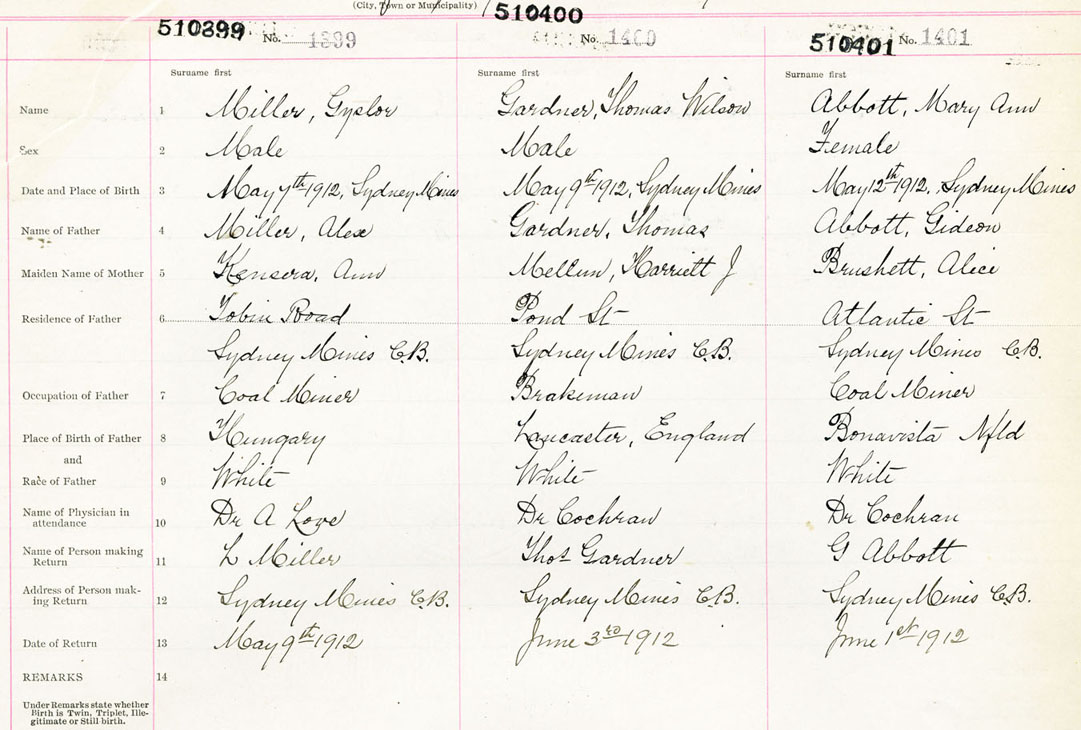 (City, Town or Municipality)
510399 No. 1399 510400 No. 1400 510401 No. 1401
Surname first Surname first Surname first
Name 1 Miller, Gyslor Gardner, Thomas Wilson Abbott, Mary Ann
Sex 2 Male Male Female
Date and Place of Birth 3 May 7th 1912, Sydney Mines May 9th 1912, Sydney Mines May 12th 1912, Sydney Mines
Name of Father 4 Miller, Alex Gardner, Thomas Abbott, Gideon
Maiden Name of Mother 5 Kensera, Ann Mellun, Harriett J Brushett, Alice
Residence of Father 6 Tobin Road Pond St Atlantic St
Sydney Mines C.B. Sydney Mines C.B. Sydney Mines C.B.
Occupation of Father 7 Coal Miner Brakeman Coal Miner
Place of Birth of Father 8 Hungary Lancaster, England Bonavista Nfld
and
Race of Father 9 White White White
Name of Physician in
attendance 10 Dr A Love Dr Cochran Dr Cochran
Name of Person making
Return 11 L Miller Thos Gardner G Abbott
Address of Person mak-
ing Return 12 Sydney Mines C.B. Sydney Mines C.B. Sydney Mines C.B.
Date of Return 13 May 9th 1912 June 3rd 1912 June 1st 1912
REMARKS 14
Under Remarks state whether
Birth is Twin, Triplet, Ille-
gitimate or Still birth.